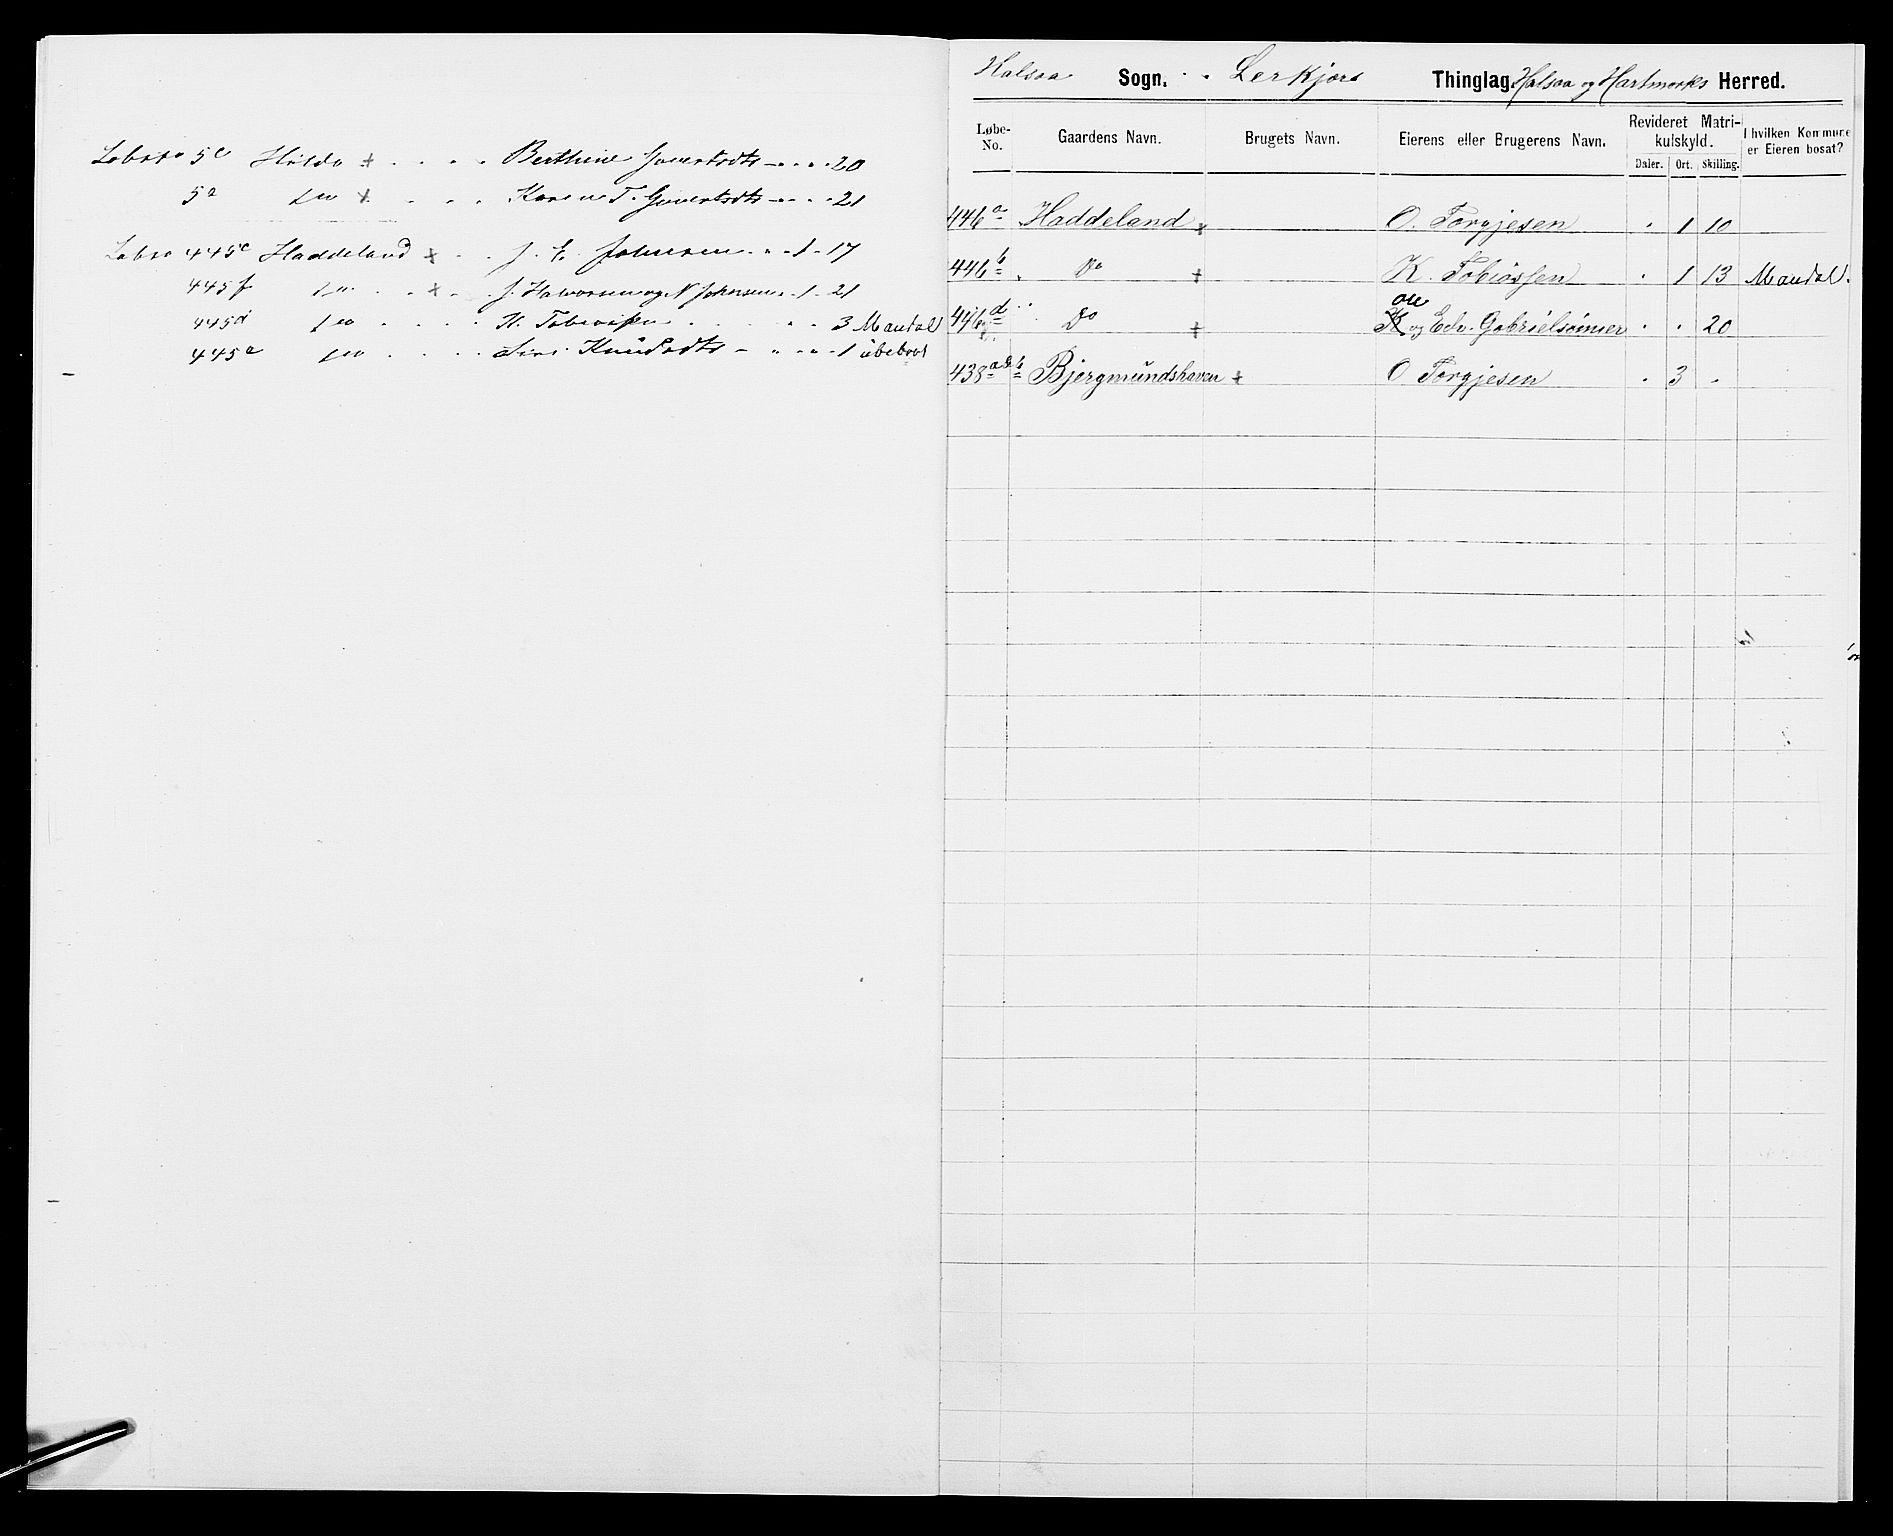 Løbno 5c Hilde + . . . . Berthine Govertsdt - . . . 20
5a do + . . . Karen T. Govertsdt . . . 21
Løbno 445c Haddeland + . . J. E. Johnsen . . 1 - 17
445f do . . + . . J. Halvorsen og N Johnsen . 1 - 21
445d do . . . . K. Tobiassen . . . . 3 Mandal
445e do . . . . Siri Knudsdt - . . . 1 ubeboet
Halsaa Sogn. Lerkjærs Thinglag. Halsaa og Hartmarks Herred.
Løbe-No. Gaardens Navn. Brugets Navn. Eierens eller Brugerens Navn. Revideret Matrikulskyld. Daler. Ort. Skilling. I hvilken Kommune er Eieren bosat?
446a Haddeland + O. Torgjesen . 1 10
446b Do + K. Tobiassen . 1 13 Mandal.
446d Do + Ole og Edv. Gabrielsønner . . 20
438a&b Bjergmundshaven + O Torgjesen . 3 .